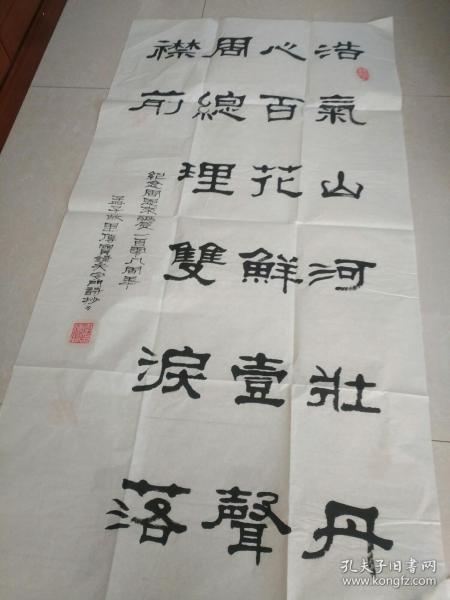 浩氣山河壯丹
心百花鮮壹聲
周總理雙淚落
襟前
紀念周恩來一百零八周年
天安門詩抄
孔夫子旧书网
www.kongfz.com